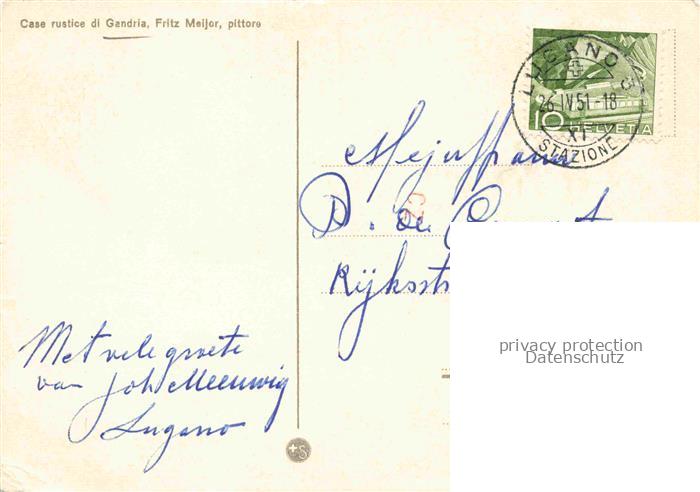 Case rustice di Gandria, Fritz Meijer, pittore
LUGANO 3
26.IV.51-18
XI
STAZIONE
10 HELVETIA
Mejuffrouw
D. de
Rijksstr
Met vele groete
van Joh Meeuwig
Lugano
privacy protection
Datenschutz
+S